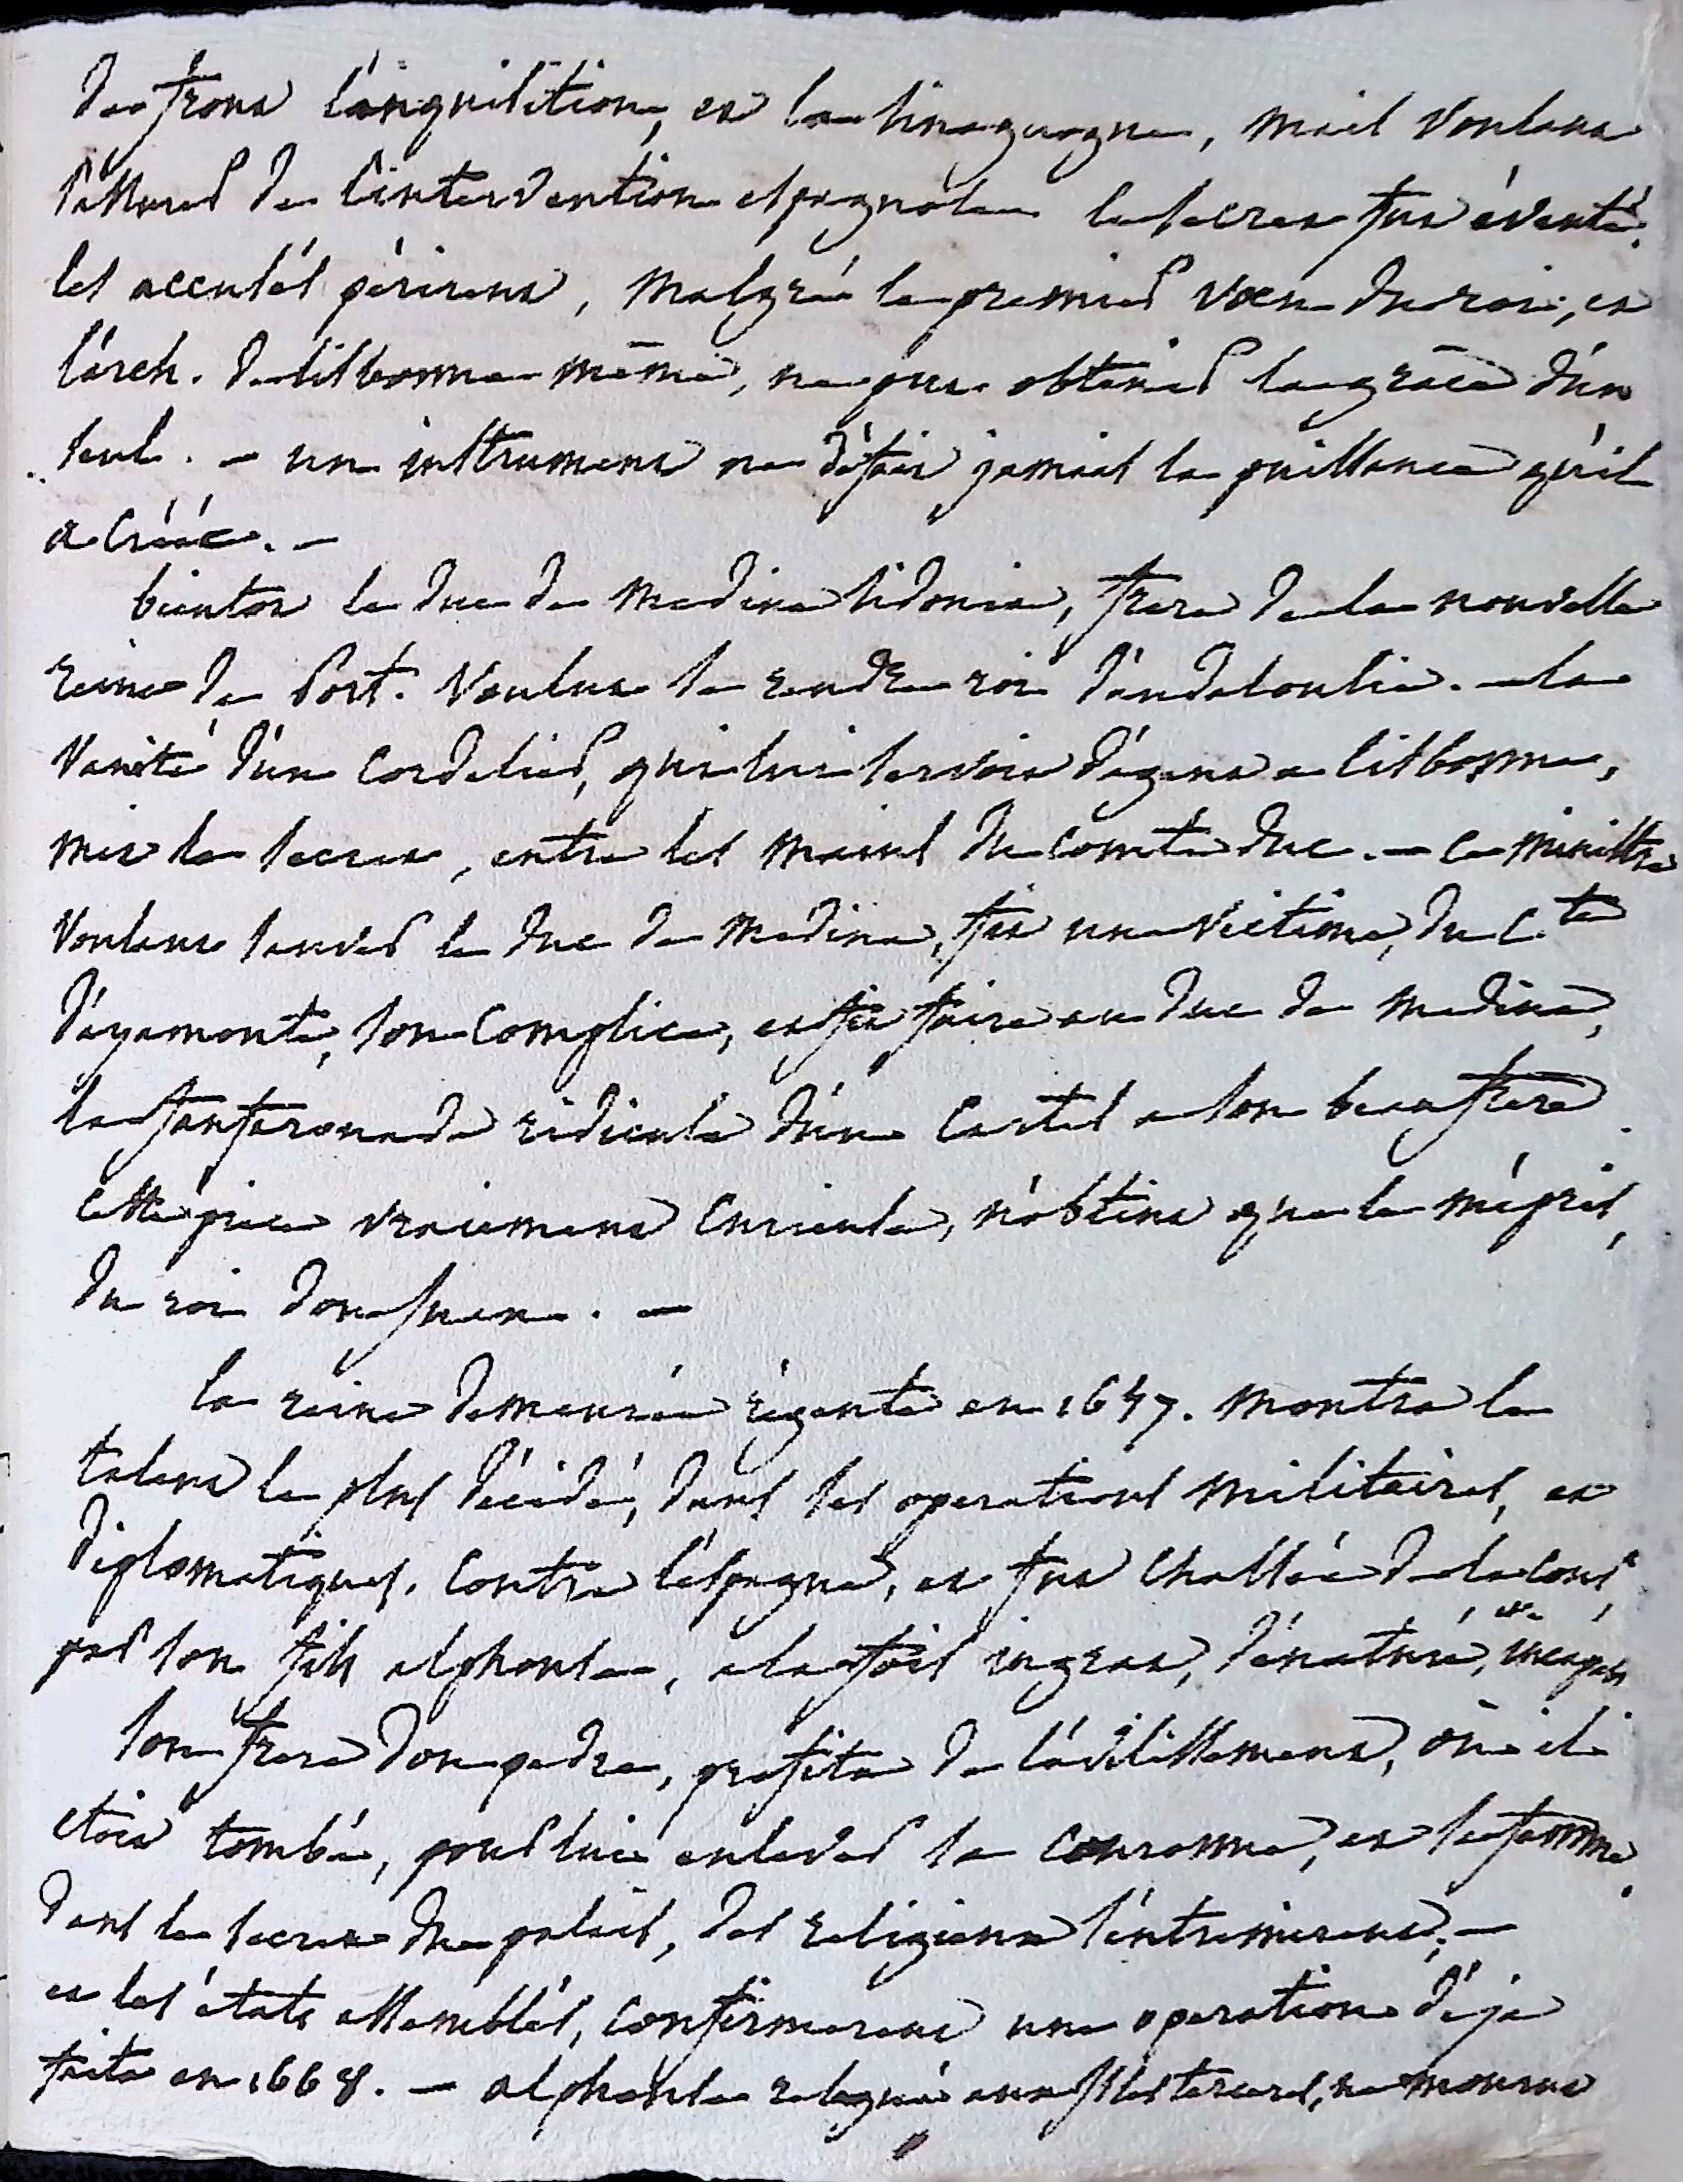 de front l'inquisition, et la sinagogue, mais voulant
s'assurer de l'intervention espagnole le secret fut éventé.
les accusés périrent, malgré le premier vœu du roi, et
l'arch. de lisbonne même, ne put obtenir la grâce d'un
seul. – un instrument ne défait jamais la puissance qu'il
a créée. –
bientot le duc de medina sidonia, frere de la nouvelle
reine de Port. voulut se rendre roi d'andalousie. – la
vanité d'un cordelier, qui lui servoit d'agent a lisbonne,
mit le secret, entre les mains du comte duc. – ce ministre
voulant sauver le duc de medina, fit une victime, du C.te
d'ayamonte, son complice, et fit faire au duc de medina,
la fanfaronade ridicule d'un cartel a son beau frere.
cette piece vraiement curieuse, n'obtint que le mépris,
du roi don juan. –
la reine demeurée régente en 1657. montra le
talent le plus décidé, dans les operations militaires, et
diplomatiques, contre l'espagne, et fut chassée de la cour,
par son fils alphonse, a la fois ingrat, dénaturé, et incapable
son frere don pedre, profita de l'avilissement, où il
etoit tombé, pour lui enlever la couronne, et sa femme.
dans le secret du palais, des religieux s'entremirent, –
et les états assemblés, confirmerent une operation déja
faite en 1668. – alphonse relegué aux isles terceres, ne mourut